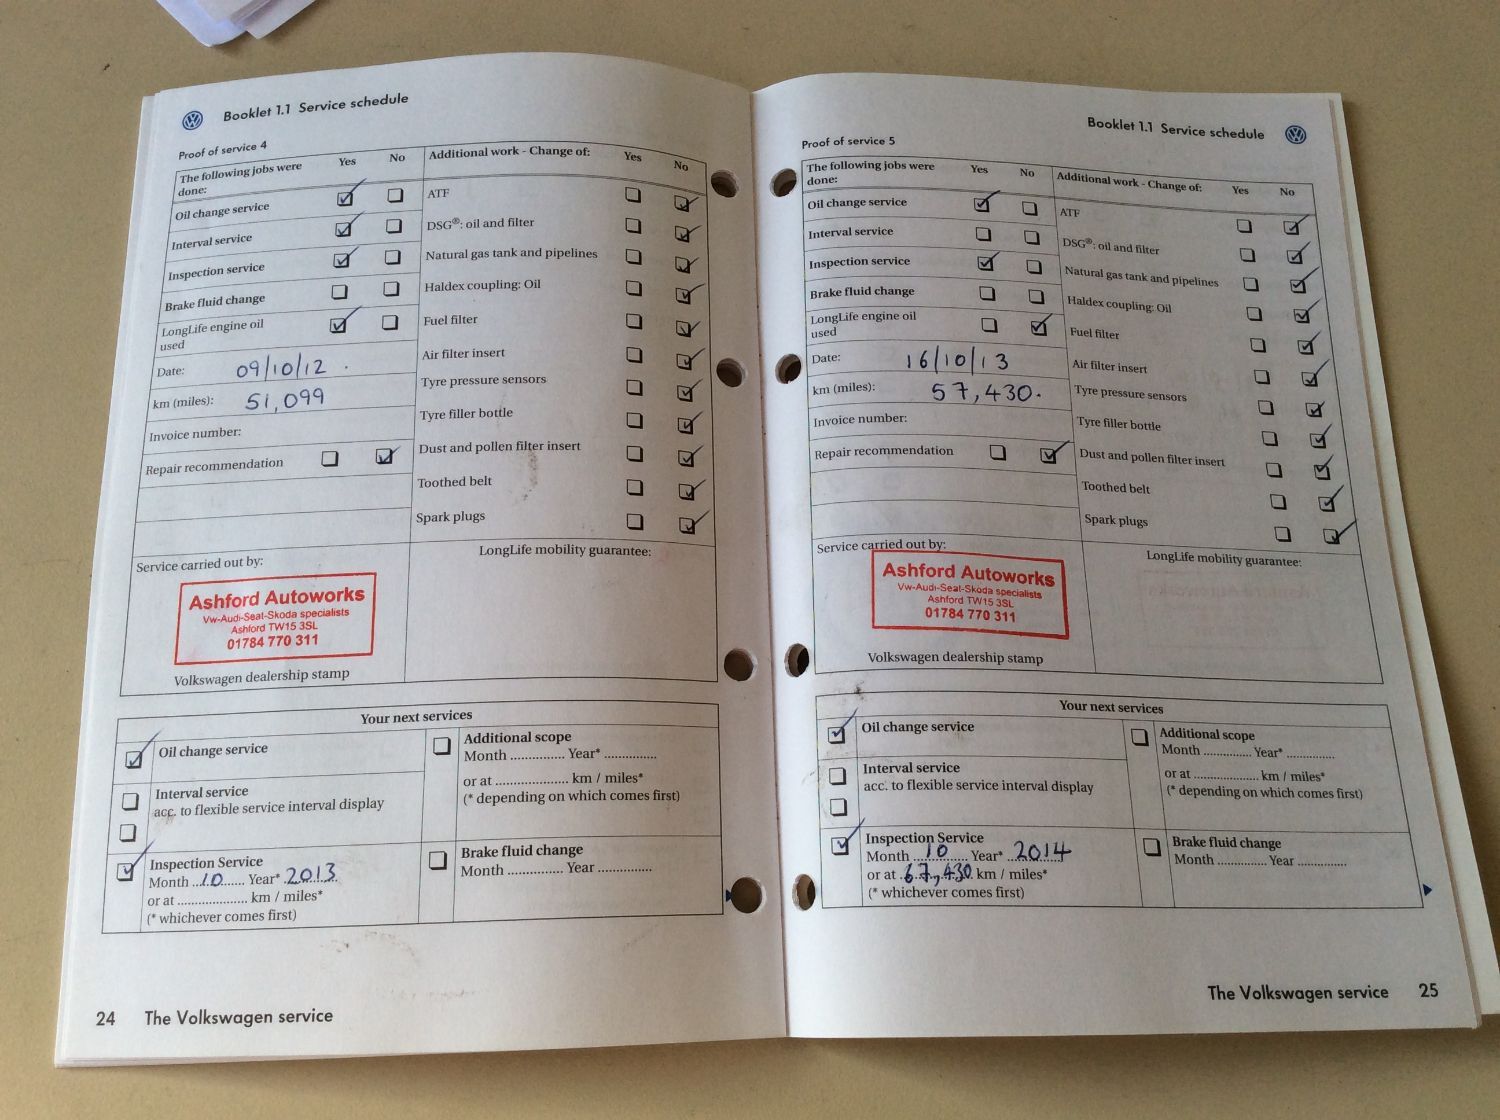 Booklet 1.1 Service schedule
Proof of service 4
The following jobs were done: Yes No
Oil change service
Interval service
Inspection service
Brake fluid change
LongLife engine oil used
Date: 09/10/12 .
km (miles): 51,099
Invoice number:
Repair recommendation
Additional work - Change of: Yes No
ATF
DSG®: oil and filter
Natural gas tank and pipelines
Haldex coupling: Oil
Fuel filter
Air filter insert
Tyre pressure sensors
Tyre filler bottle
Dust and pollen filter insert
Toothed belt
Spark plugs
Service carried out by:
Ashford Autoworks
Vw-Audi-Seat-Skoda specialists
Ashford TW15 3SL
01784 770 311
Volkswagen dealership stamp
LongLife mobility guarantee:
Your next services
Oil change service
Interval service
acc. to flexible service interval display
Inspection Service
Month ..10...... Year* 2013
or at .................... km / miles*
(* whichever comes first)
Additional scope
Month ............... Year* ..............
or at .................... km / miles*
(* depending on which comes first)
Brake fluid change
Month ............... Year ...............
24 The Volkswagen service
Booklet 1.1 Service schedule
Proof of service 5
The following jobs were done: Yes No
Oil change service
Interval service
Inspection service
Brake fluid change
LongLife engine oil used
Date: 16/10/13
km (miles): 57,430.
Invoice number:
Repair recommendation
Additional work - Change of: Yes No
ATF
DSG®: oil and filter
Natural gas tank and pipelines
Haldex coupling: Oil
Fuel filter
Air filter insert
Tyre pressure sensors
Tyre filler bottle
Dust and pollen filter insert
Toothed belt
Spark plugs
Service carried out by:
Ashford Autoworks
Vw-Audi-Seat-Skoda specialists
Ashford TW15 3SL
01784 770 311
Volkswagen dealership stamp
LongLife mobility guarantee:
Your next services
Oil change service
Interval service
acc. to flexible service interval display
Inspection Service
Month ..10...... Year* 2014
or at 67,430 km / miles*
(* whichever comes first)
Additional scope
Month .............. Year* ..............
or at .................... km / miles*
(* depending on which comes first)
Brake fluid change
Month .............. Year ..............
The Volkswagen service 25